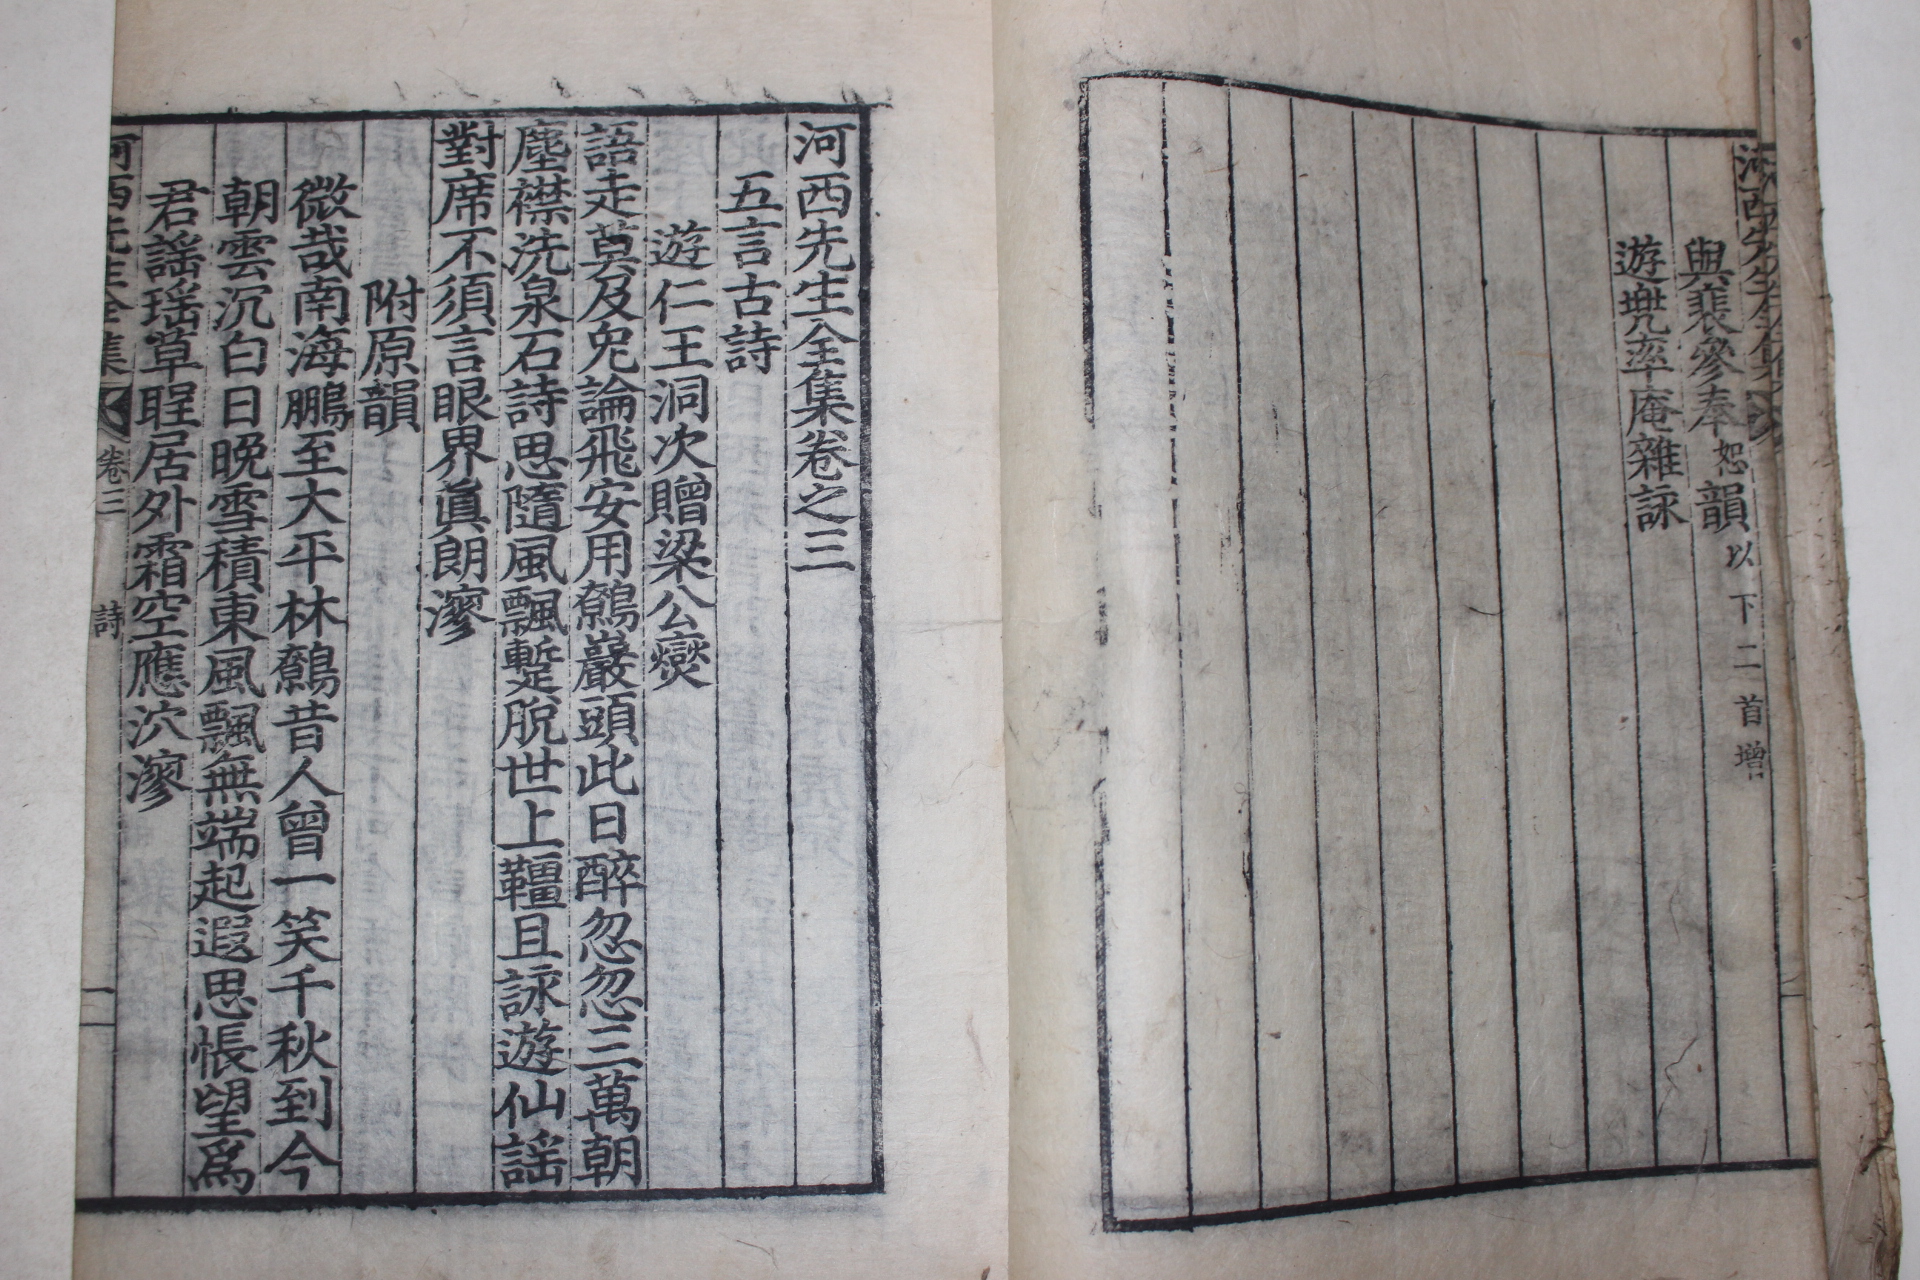 河西先生全集
與裴參奉恕韻以下二首增
遊兠率庵雜詠
河西先生全集卷之三
五言古詩
遊仁王洞次贈梁公燮
語走莫及兔論飛安用鷦巖頭此日醉忽忽三萬朝
塵襟洗泉石詩思隨風飄蹔脫世上韁且詠遊仙謡
對席不須言眼界眞朗漻
附原韻
微哉南海鵬至大平林鷦昔人曾一笑千秋到今
朝雲沉白日晩雪積東風飄無端起遐思悵望爲
君謡瑶草睲居外霜空應泬漻
河西先生全集 卷三 詩 一